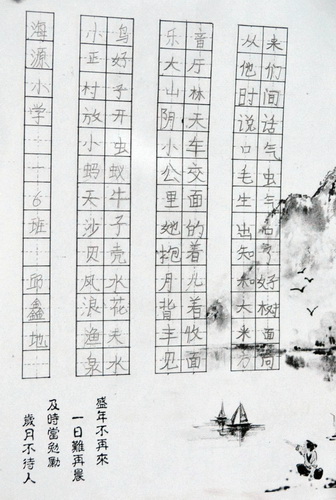 海源小学
一6班
邱鑫地
小鸟
正好
村子
放开
小虫
蚂蚁
天牛
沙子
贝壳
风水
浪花
渔夫
泉水
乐音
大厅
山林
阴天
小车
公交
里面
她的
抱着
月儿
背着
丰收
见面
从来
他们
时间
说话
口气
毛虫
生气
出
知
和好
大树
米面
方
盛年不再來
一日難再晨
及時當勉勵
歲月不待人